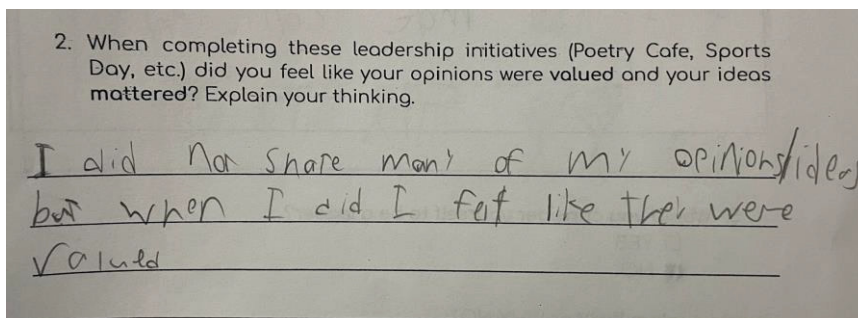 2. When completing these leadership initiatives (Poetry Cafe, Sports
Day, etc.) did you feel like your opinions were valued and your ideas
mattered? Explain your thinking.
I did not share many of my opinions/ideas
but when I did I felt like they were
valued